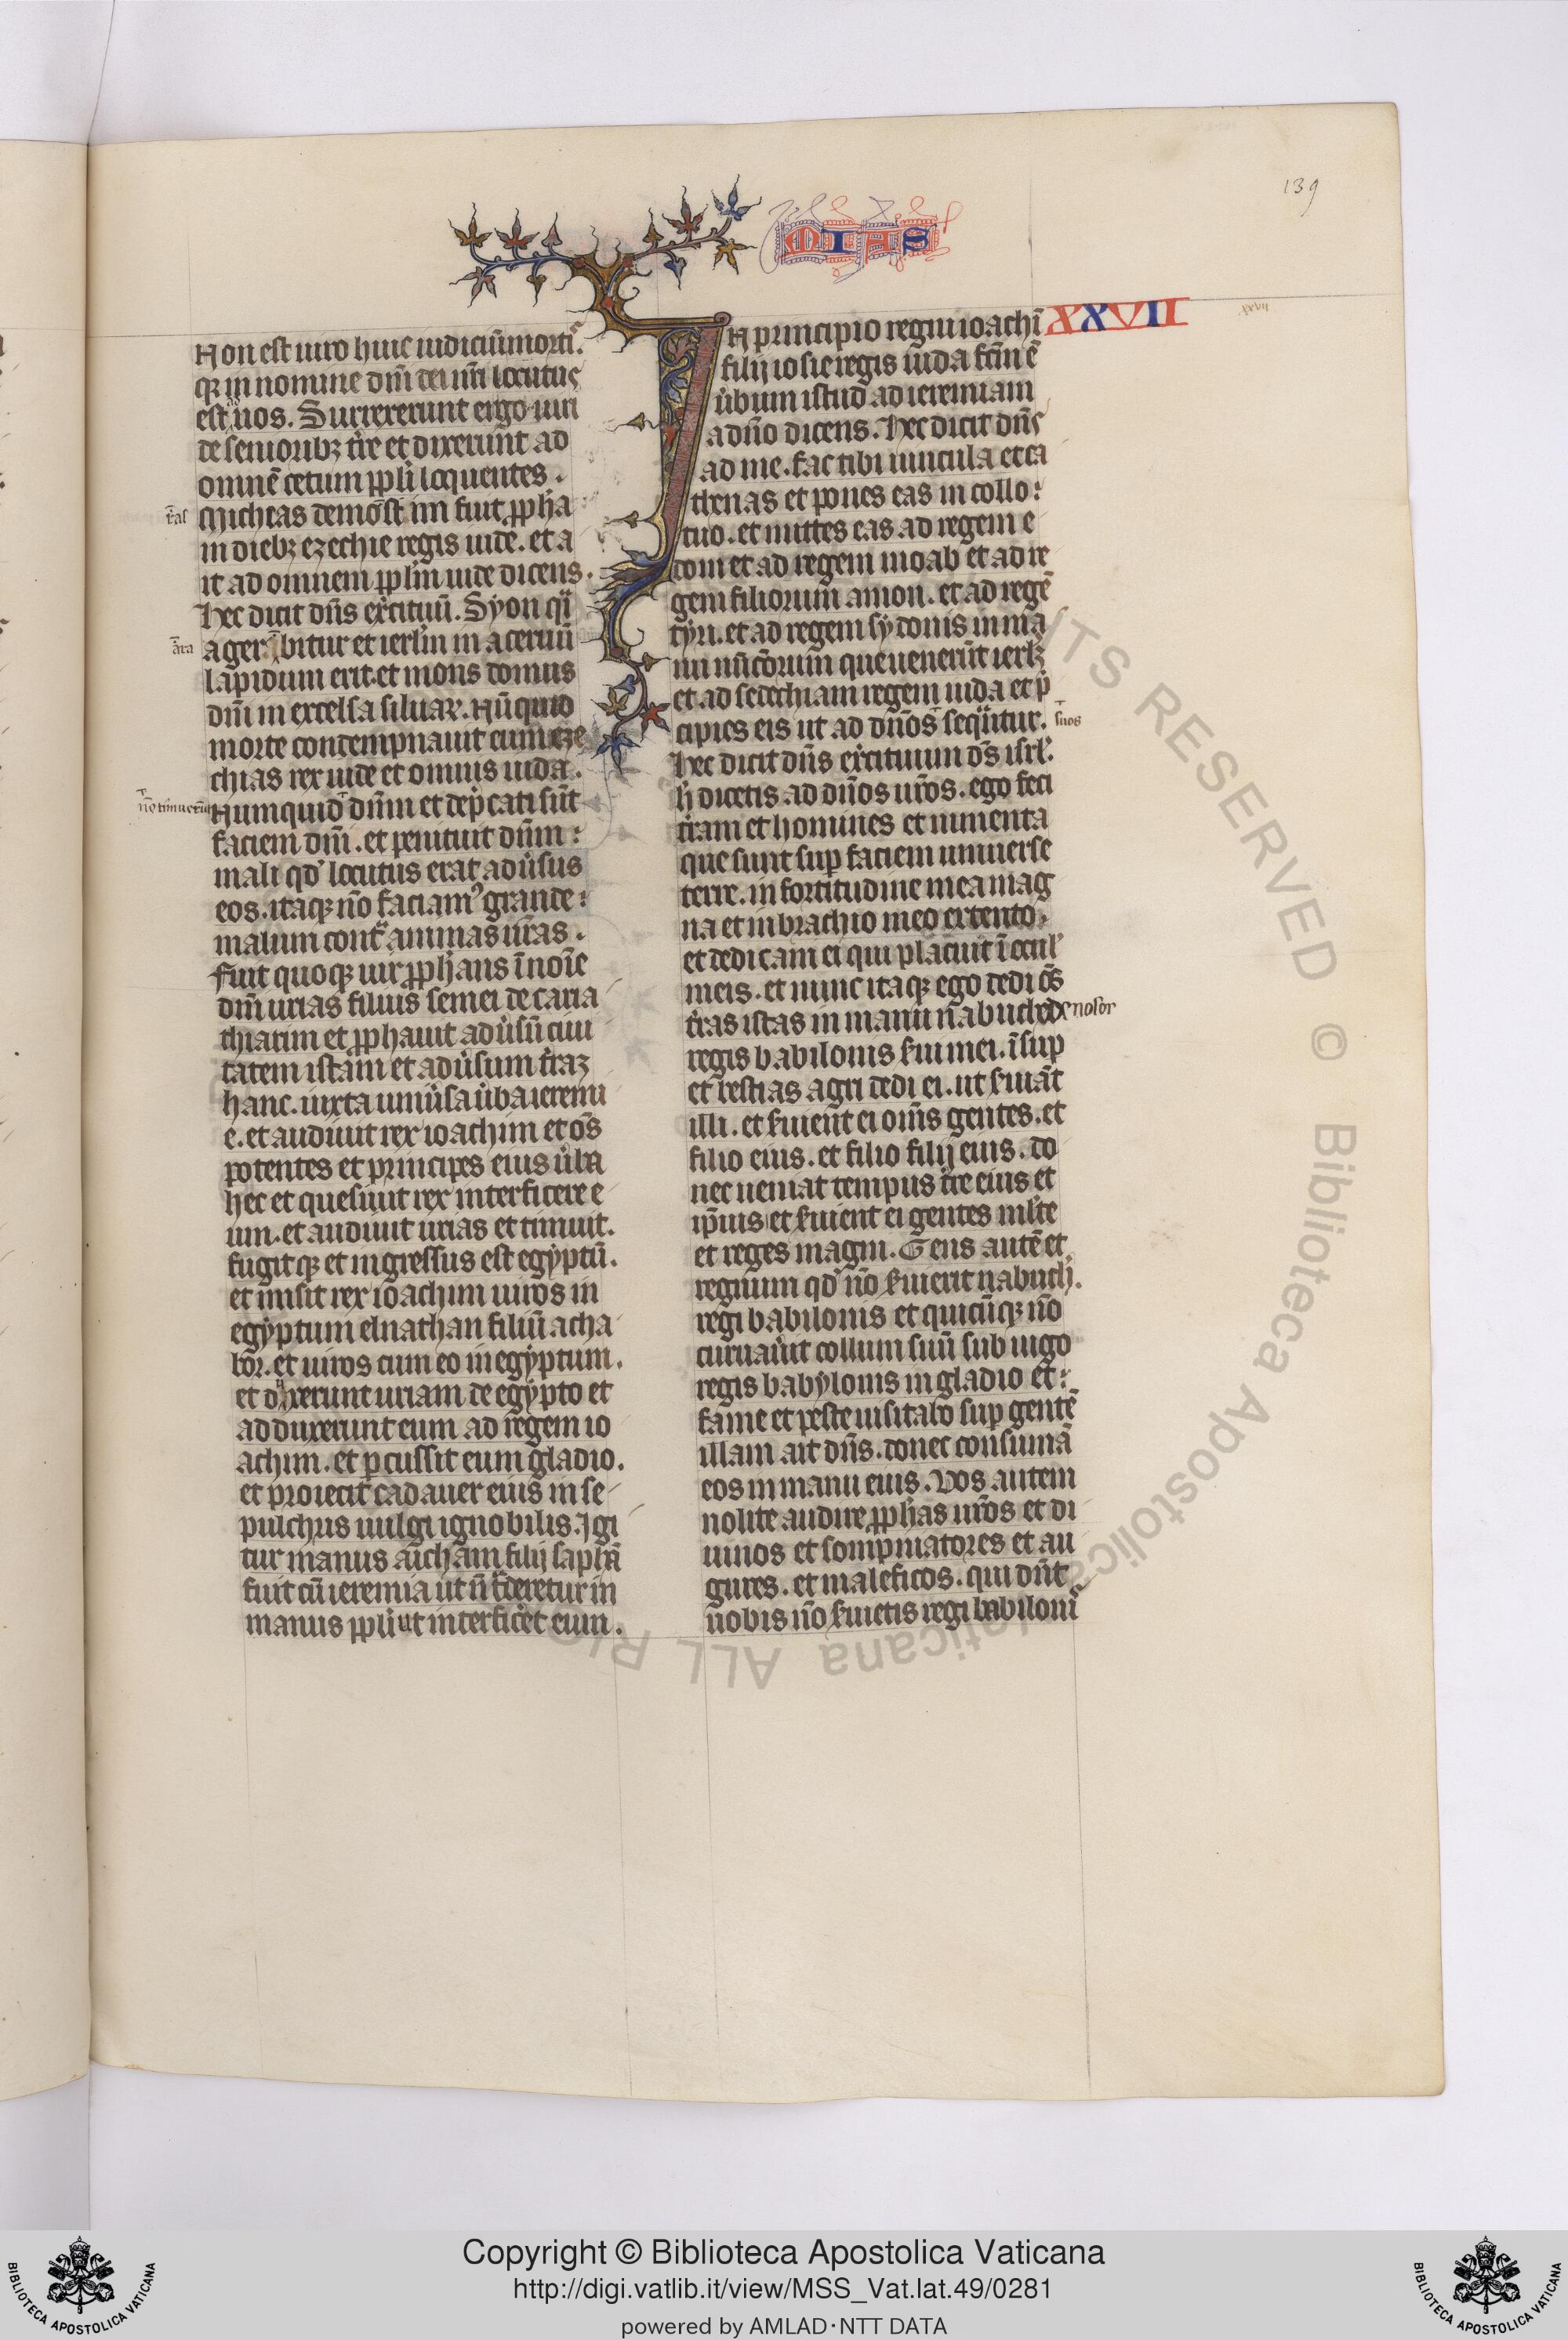 139
MIAS
Non est uiro huic iudiciū morti˜.
qꝫ in nomine dn̄i dei nr̄i locutus
est ad uos. Surrexerunt ergo uiri
de senioribꝫ tr̄e et dixerunt ad
omnē cetum ppl̄i loquentes.
t̄as Micheas demorast̄im fuit ꝓph̄a
in diebꝫ ezechie regis iude. et a
it ad omnem ppl̄m iude dicens.
Hec dicit dn̄s exercituū. Syon qͣi
ager ārabitur et ierl̄m in aceruū
āra
lapidum erit. et mons domus
dn̄i in excelsa siluaꝝ. Nūquid
morte contempnauit eum eze
chias rex iude et omnis iuda.
nō timuerūt Numquid dn̄m et dep̄cati sūt
faciem dn̄i. et penituit dn̄m
mali qd̓ locutus erat adūsus
eos. itaqꝫ nō faciamꝰ grande
malum contͣ animas ur̄as.
Fuit quoqꝫ uir ꝓph̄ans ī noīe
dn̄i urias filius semei de caria
thiarim et ꝓphauit adūsū ciui
tatem istam et adūsum tr̄aꝫ
hanc. iuxta uniūsa ūba ieremi
e. et audiuit rex ioachim et os̄
potentes et principes eius ūba
hec et quesiuit rex interficere e
um. et audiuit urias et timuit.
fugitqꝫ et ingressus est egyptū.
et misit rex ioachim uiros in
egyptum elnathan filiū acha
bor. et uiros cum eo in egyptum.
et duxerunt uriam de egypto et
adduxerunt eum ad regem io
achim. et ꝑcussit eum gladio.
et proiecit cadauer eius in se
pulchris uulgi ignobilis. Igi
tur manus aicham filij saphā
fuit cū ieremia ut n̄ tderetur in
manus ppl̄i ut interficēt eum.
XXVII
xxvii
In principio regni ioachī
filij iosie regis iuda fc̄m ē
ūbum istud ad ieremiam
a dn̄o dicens. Hec dicit dn̄s
ad me. fac tibi uincula et ca
thenas et pones eas in collo
tuo. et mittes eas ad regem e
dom et ad regem moab et ad re
gem filiorum amon. et ad regē
tyri. et ad regem sydonis in ma
nu nūc̄orum que uenerūt ierlꝫ
et ad sedechiam regem iuda et p̄
cipies eis ut ad dn̄os seqͣntur. suos
Hec dicit dn̄s exercituum ds̄ isrl̄.
h̄ dicetis ad dn̄os ur̄os. ego feci
tr̄am et homines et iumenta
que sunt suꝑ faciem uniuerse
terre. in fortitudine mea mag
na et in brachio meo extento.
et dedi eam ei qui placuit ī ocul̓
meis. et nunc itaqꝫ ego dedi os̄
tr̄as istas in manu nabuchodenosor
regis babilonis s̄ui mei. īsuꝑ
et bestias agri dedi ei. ut s̄uiāt
illi. et s̄uient ei oms̄ gentes. et
filio eius. et filio filij eius. do
nec ueniat tempus tr̄e eius et
ip̄ius et s̄uient ei gentes ml̄te
et reges magni. Gens autē et
regnum qd̓ nō s̄uierit nabuch̄.
regi babilonis et quicūqꝫ nō
curuaūit collum suū sub iugo
regis babylonis in gladio et
fame et peste uisitabo suꝑ gentē
illam ait dn̄s. donec consumā
eos in manu eius. Vos autem
nolite audire ꝓph̄as ur̄os et di
uinos et sompniatores et au
gures. et maleficos. qui dn̄t
uobis nō s̄uietis regi babiloni˜
ALL RIGHTS RESERVED © Biblioteca Apostolica Vaticana
Copyright © Biblioteca Apostolica Vaticana
http://digi.vatlib.it/view/MSS_Vat.lat.49/0281
powered by AMLAD·NTT DATA
BIBLIOTECA APOSTOLICA VATICANA
BIBLIOTECA APOSTOLICA VATICANA